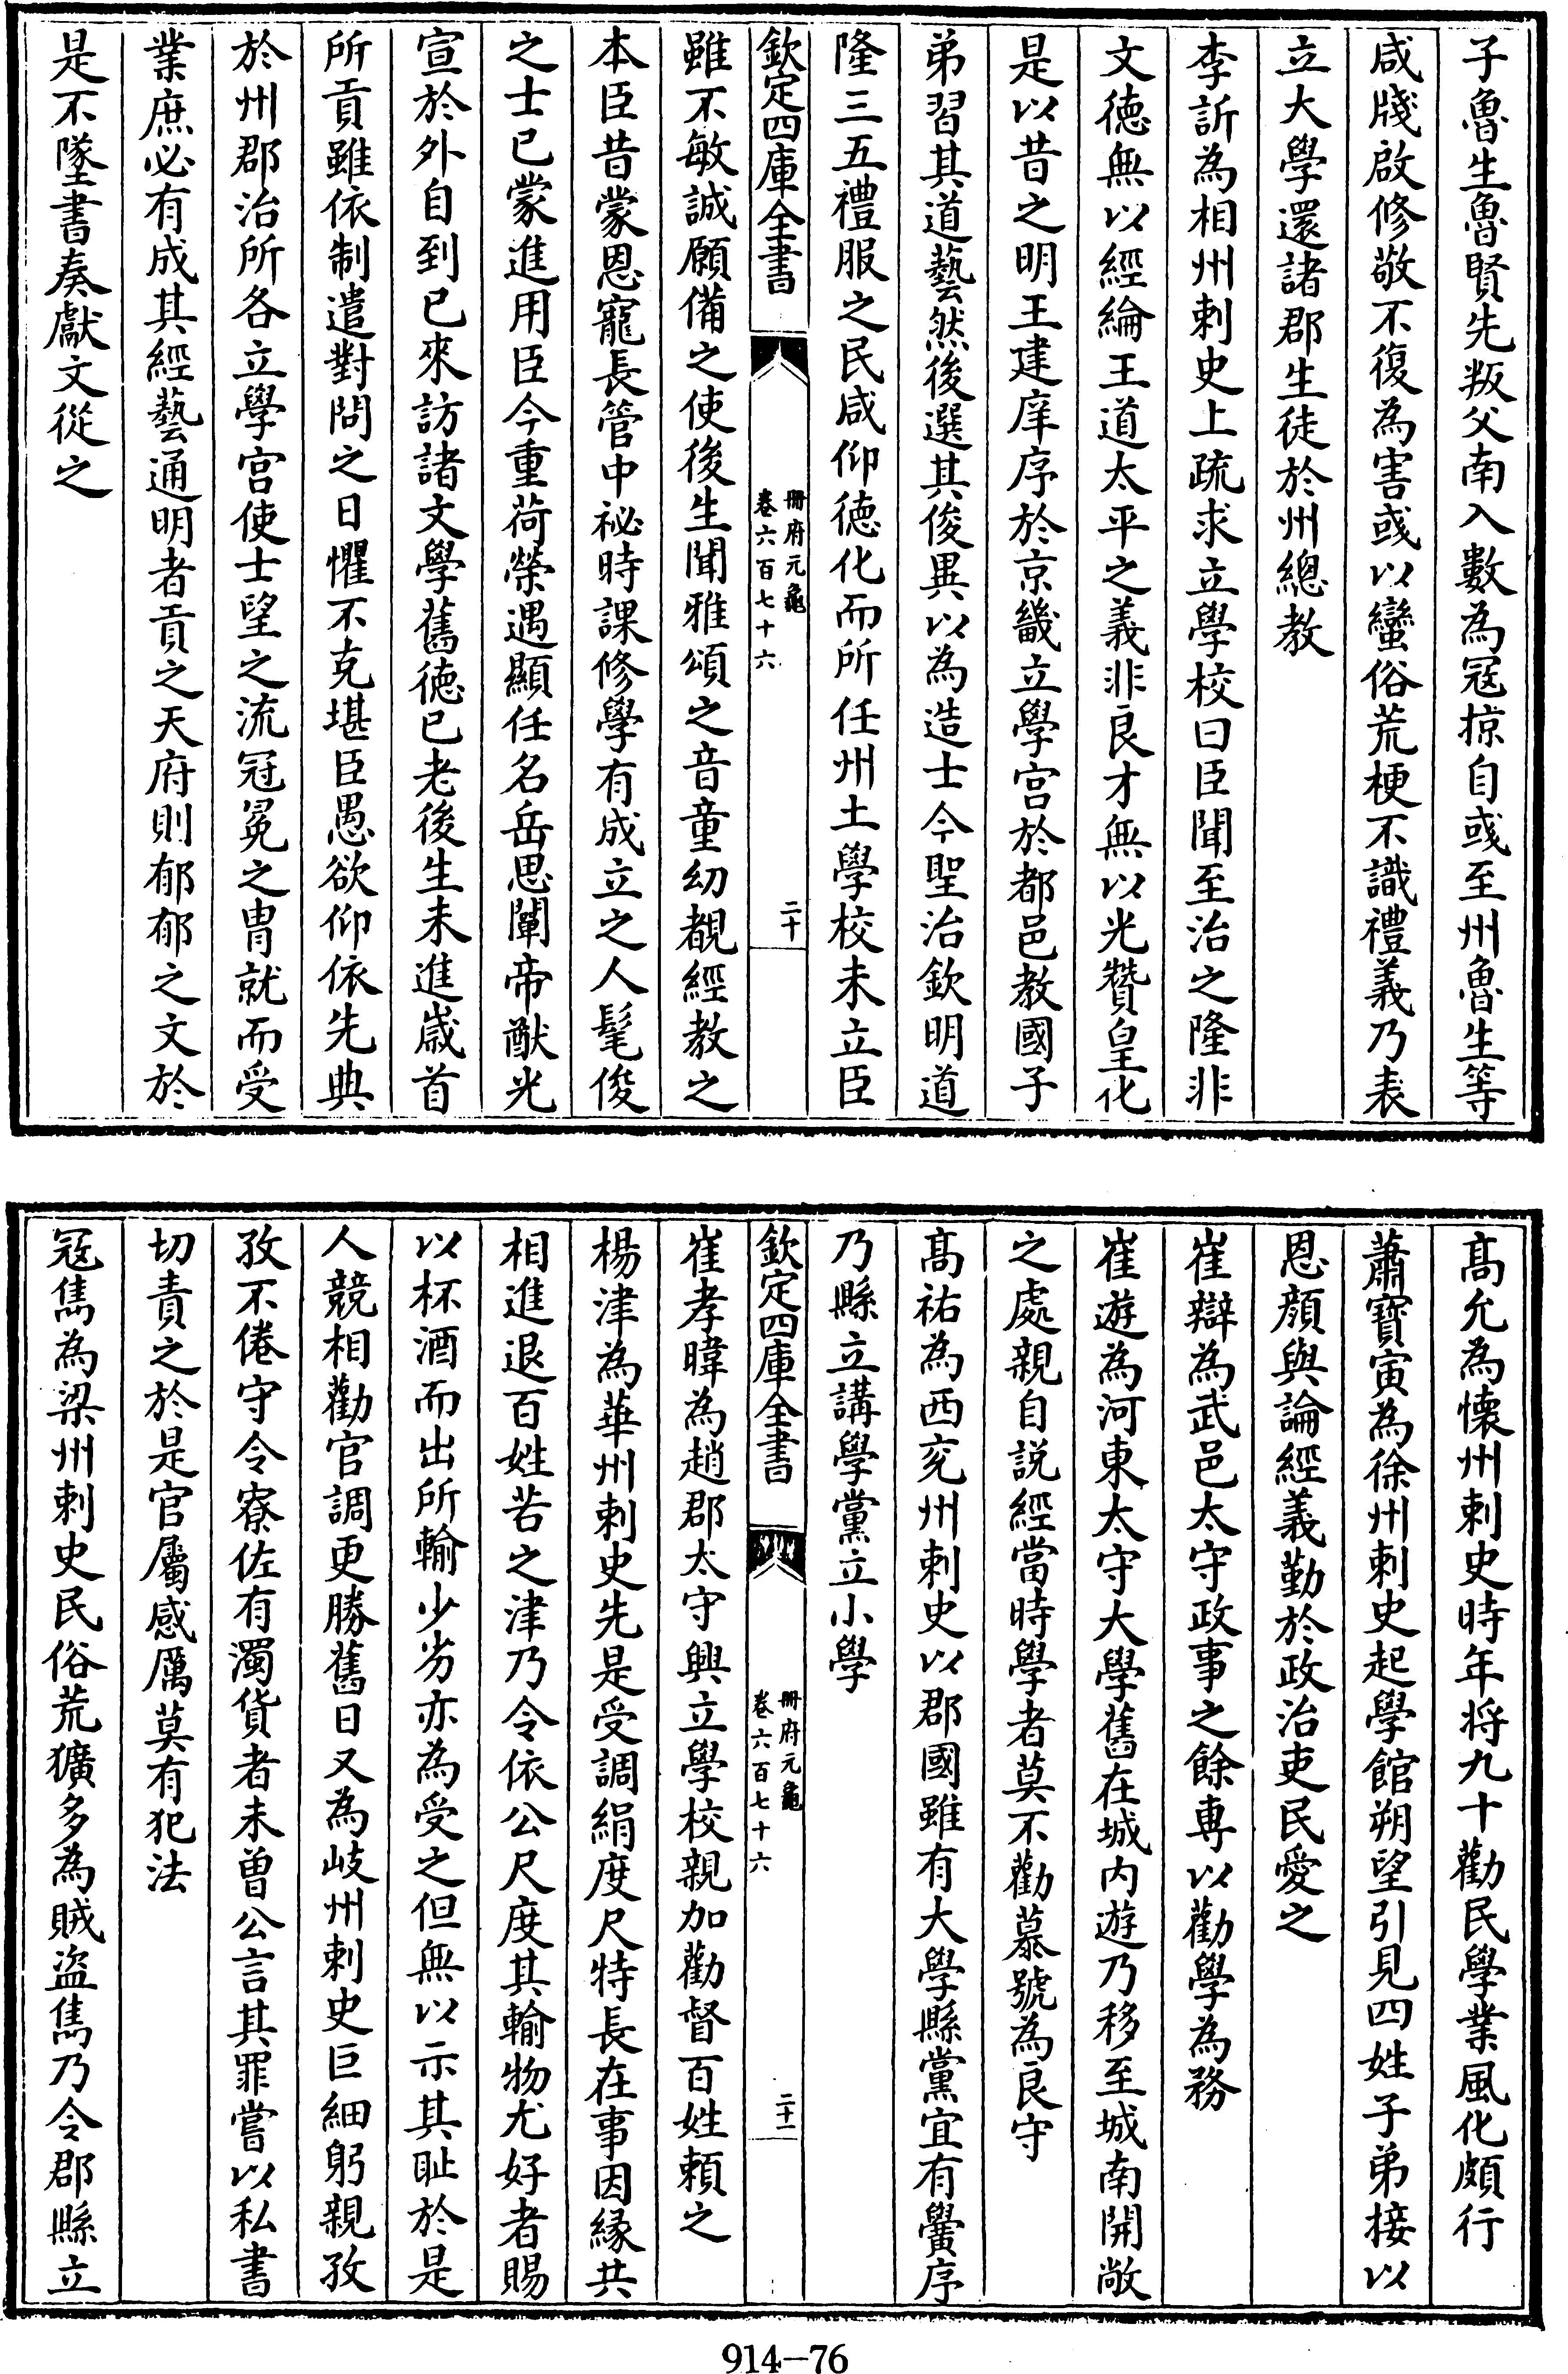 子魯生魯賢先叛父南入數為冦掠自彧至州魯生等
咸牋啟修敬不復為害彧以蠻俗荒梗不識禮義乃表
立大學還諸郡生徒於州總教
李訢為相州刺史上疏求立學校曰臣聞至治之隆非
文徳無以經綸王道太平之義非良才無以光贊皇化
是以昔之明王建庠序於京畿立學宫於都邑教國子
弟習其道藝然後選其俊異以為造士今聖治欽明道
隆三五禮服之民咸仰徳化而所任州土學校未立臣
欽定四庫全書
冊府元龜
卷六百七十六
二十
雖不敏誠願備之使後生聞雅頌之音童幼覩經教之
本臣昔蒙恩寵長管中祕時課修學有成立之人髦俊
之士已蒙進用臣今重荷榮遇顯任名岳思闡帝猷光
宣於外自到已來訪諸文學舊徳已老後生未進歲首
所貢雖依制遣對問之日懼不克堪臣愚欲仰依先典
於州郡治所各立學宫使士望之流冠冕之胄就而受
業庶必有成其經藝通明者貢之天府則郁郁之文於
是不墜書奏獻文從之
髙允為懷州刺史時年将九十勸民學業風化頗行
蕭寶寅為徐州刺史起學館朔望引見四姓子弟接以
恩顔與論經義勤於政治吏民愛之
崔辯為武邑太守政事之餘專以勸學為務
崔遊為河東太守大學舊在城内遊乃移至城南閒敞
之處親自説經當時學者莫不勸慕號為良守
髙祐為西兖州刺史以郡國雖有大學縣黨宜有黌序
乃縣立講學黨立小學
欽定四庫全書
冊府元龜
卷六百七十六
二十一
崔孝暐為趙郡太守興立學校親加勸督百姓頼之
楊津為華州刺史先是受調絹度尺特長在事因縁共
相進退百姓苦之津乃令依公尺度其輸物尤好者賜
以杯酒而出所輸少劣亦為受之但無以示其恥於是
人競相勸官調更勝舊日又為岐州刺史巨細躬親孜
孜不倦守令寮佐有濁貨者未曾公言其罪嘗以私書
切責之於是官屬感厲莫有犯法
冦雋為梁州刺史民俗荒獷多為賊盗雋乃令郡縣立
914-76